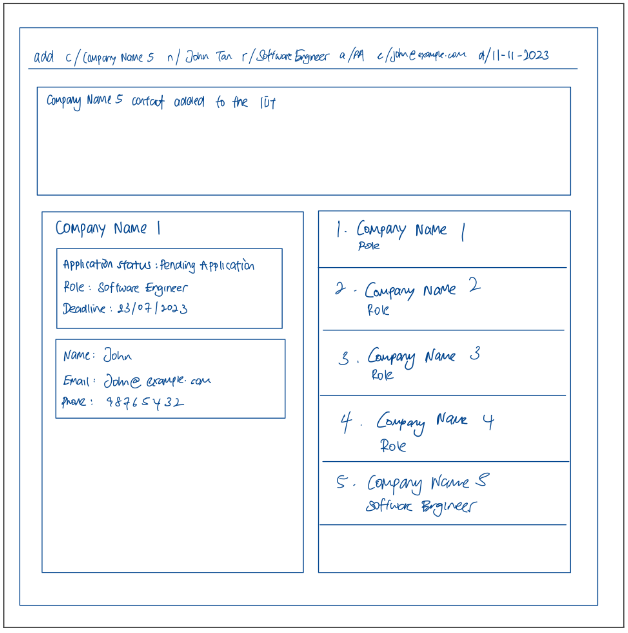 add c/Company Name 5 n/John Tan r/Software Engineer a/PA e/john@example.com d/11-11-2023
Company Name 5 contact added to the list
Company Name 1
Application status : Pending Application
Role : Software Engineer
Deadline : 23/07/2023
Name : John
Email : John@example.com
Phone : 98765432
1. Company Name 1
Role
2. Company Name 2
Role
3. Company Name 3
Role
4. Company Name 4
Role
5. Company Name 5
Software Engineer